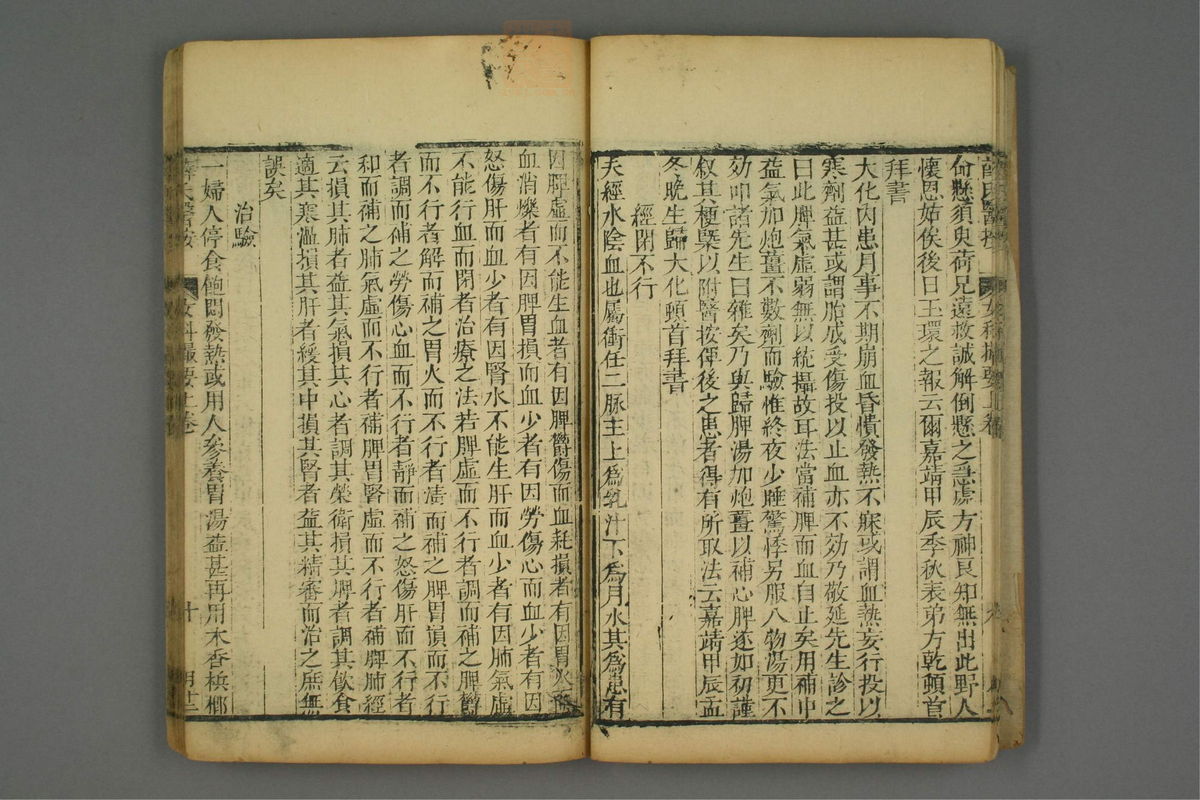 薛氏醫按 女科撮要上卷
倘懸須臾荷兄遠救誠解倒懸之急處方神良知無出此野人
懷恩姑俟後日玉環之報云爾嘉靖甲辰季秋表弟方乾頓首
拜書
大化内患月事不期崩血昏憒發熱不寐或謂血熱妄行投以
寒劑益甚或謂胎成受傷投以止血亦不効乃敬延先生診之
曰此脾氣虛弱無以統攝故耳法當補脾而血自止矣用補中
益氣加炮薑不數劑而驗惟終夜少睡驚悸另服八物湯更不
効叩諸先生曰雜矣乃與歸脾湯加炮薑以補心脾遂如初謹
叙其梗槩以附醫按俾後之患者得有所取法云嘉靖甲辰孟
冬晚生歸大化頓首拜書
經閉不行
夫經水陰血也屬衝任二脉主上為乳汁下為月水其為患有
因脾虛而不能生血者有因脾鬱傷而血耗損者有因胃火而
血消爍者有因脾胃損而血少者有因勞傷心而血少者有因
怒傷肝而血少者有因腎水不能生肝而血少者有因肺氣虛
不能行血而閉者治療之法若脾虛而不行者調而補之脾鬱
而不行者解而補之胃火而不行者清而補之脾胃損而不行
者調而補之勞傷心血而不行者靜而補之怒傷肝而不行者
和而補之肺氣虛而不行者補脾胃腎虛而不行者補脾肺經
云損其肺者益其氣損其心者調其榮衛損其脾者調其飲食
適其寒溫損其肝者緩其中損其腎者益其精審而治之庶無
誤矣
治驗
一婦人停食飽悶發熱或用人參養胃湯益甚再用木香梹榔
薛氏醫按 女科撮要上卷 十